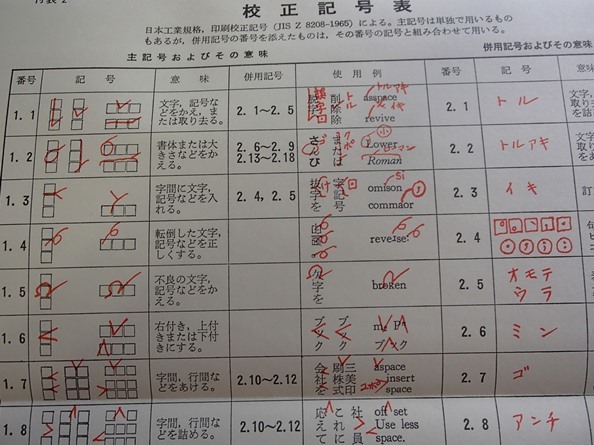 校正記号表
日本工業規格，印刷校正記号（JIS Z 8208-1965）による。主記号は単独で用いるもの
もあるが，併用記号の番号を添えたものは，その番号の記号と組み合わせて用いる。
主記号およびその意味
併用記号およびその意味
番号 記号 意味 併用記号 使用例 番号 記号
1. 1 文字，記号などをかえ，または取り去る。 2. 1～2. 5 削除 トル asspace トルアキ revive イキ 2. 1 トル
1. 2 書体または大きさなどをかえる。 2. 6～2. 9 2. 13～2. 18 さくび または ポ Lower 小 Roman ローマン 2. 2 トルアキ
1. 3 字間に文字，記号などを入れる。 2. 4, 2. 5 抜字を け 記号 omison si commaor 2. 3 イキ
1. 4 転倒した文字，記号などを正しくする。 reverse: 2. 4
1. 5 不良の文字，記号などをかえる。 欠字を broken 2. 5 オモテ ウラ
1. 6 右付き，上付きまたは下付きにする。 ブック ブック ブック 2. 6 ミン
1. 7 字間，行間などをあける。 2. 10～2. 12 会社を 刷株式 三美印 aspace insert space 2. 7 ゴ
1. 8 字間，行間などを詰める。 2. 10～2. 12 応えて これに 社員 off set Use less space. 2. 8 アンチ